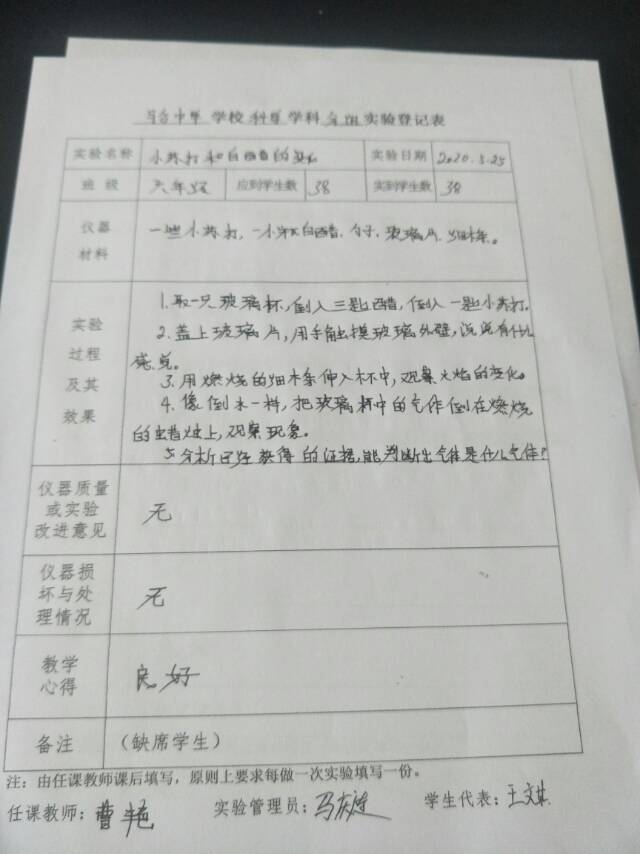 学校 科学 学科 分组 实验登记表
实验名称 小苏打和白醋的变化 实验日期 2020.5.25
班级 六年级 应到学生数 38 实到学生数 38
仪器
材料
一些小苏打,一小瓶白醋、勺子、玻璃片、细木条。
实验
过程
及其
效果
1.取一只玻璃杯,倒入三匙醋,倒入一匙小苏打.
2.盖上玻璃片,用手触摸玻璃外壁,说说有什么
感觉.
3.用燃烧的细木条伸入杯中,观察火焰的变化。
4.像倒水一样,把玻璃杯中的气体倒在燃烧
的蜡烛上,观察现象。
5.分析已经获得的证据,能判断出气体是什么气体?
仪器质量
或实验
改进意见
无
仪器损
坏与处
理情况
无
教学
心得
良好
备注 (缺席学生)
注:由任课教师课后填写,原则上要求每做一次实验填写一份。
任课教师:曹艳 实验管理员:马 学生代表:王文